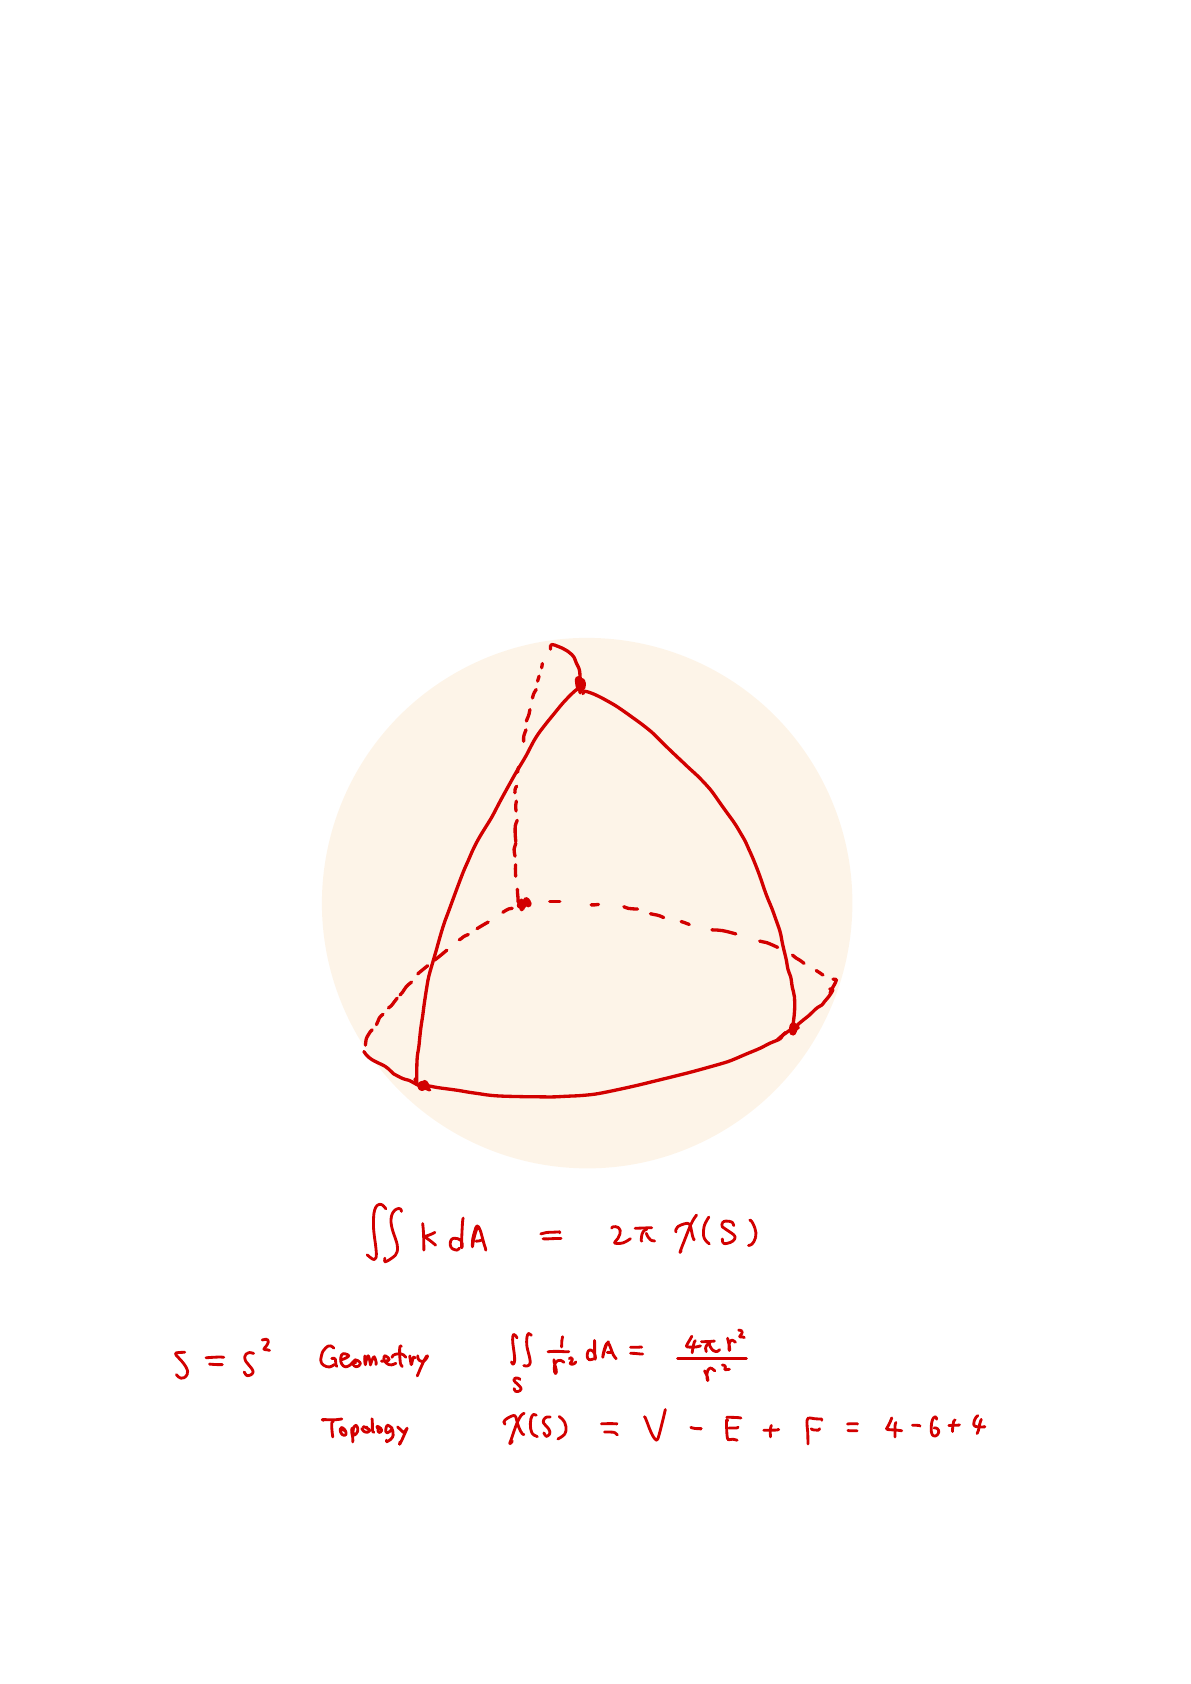 ∬ k dA = 2π χ(S)
S = S² Geometry ∬_S 1/r² dA = 4πr²/r²
Topology χ(S) = V - E + F = 4 - 6 + 4